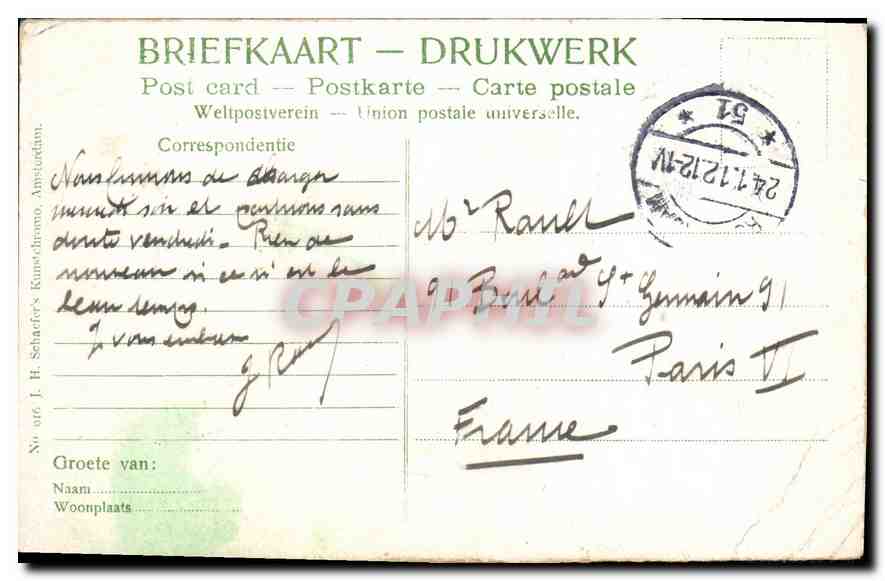 BRIEFKAART — DRUKWERK
Post card — Postkarte — Carte postale
Weltpostverein — Union postale universelle.
Correspondentie
Nous finirons de charger
mercredi soir et partirons sans
doute vendredi. Rien de
nouveau si ce n'est le
beau temps.
Je vous embrasse
J Rault
Groete van:
Naam
Woonplaats
No. 916 J. H. Schaefer's Kunstchromo, Amsterdam.
Mr Rault
9 Boulard St Germain 91
Paris VI
France
* 51 *
24.1.12.12-1V
CPAPHIL